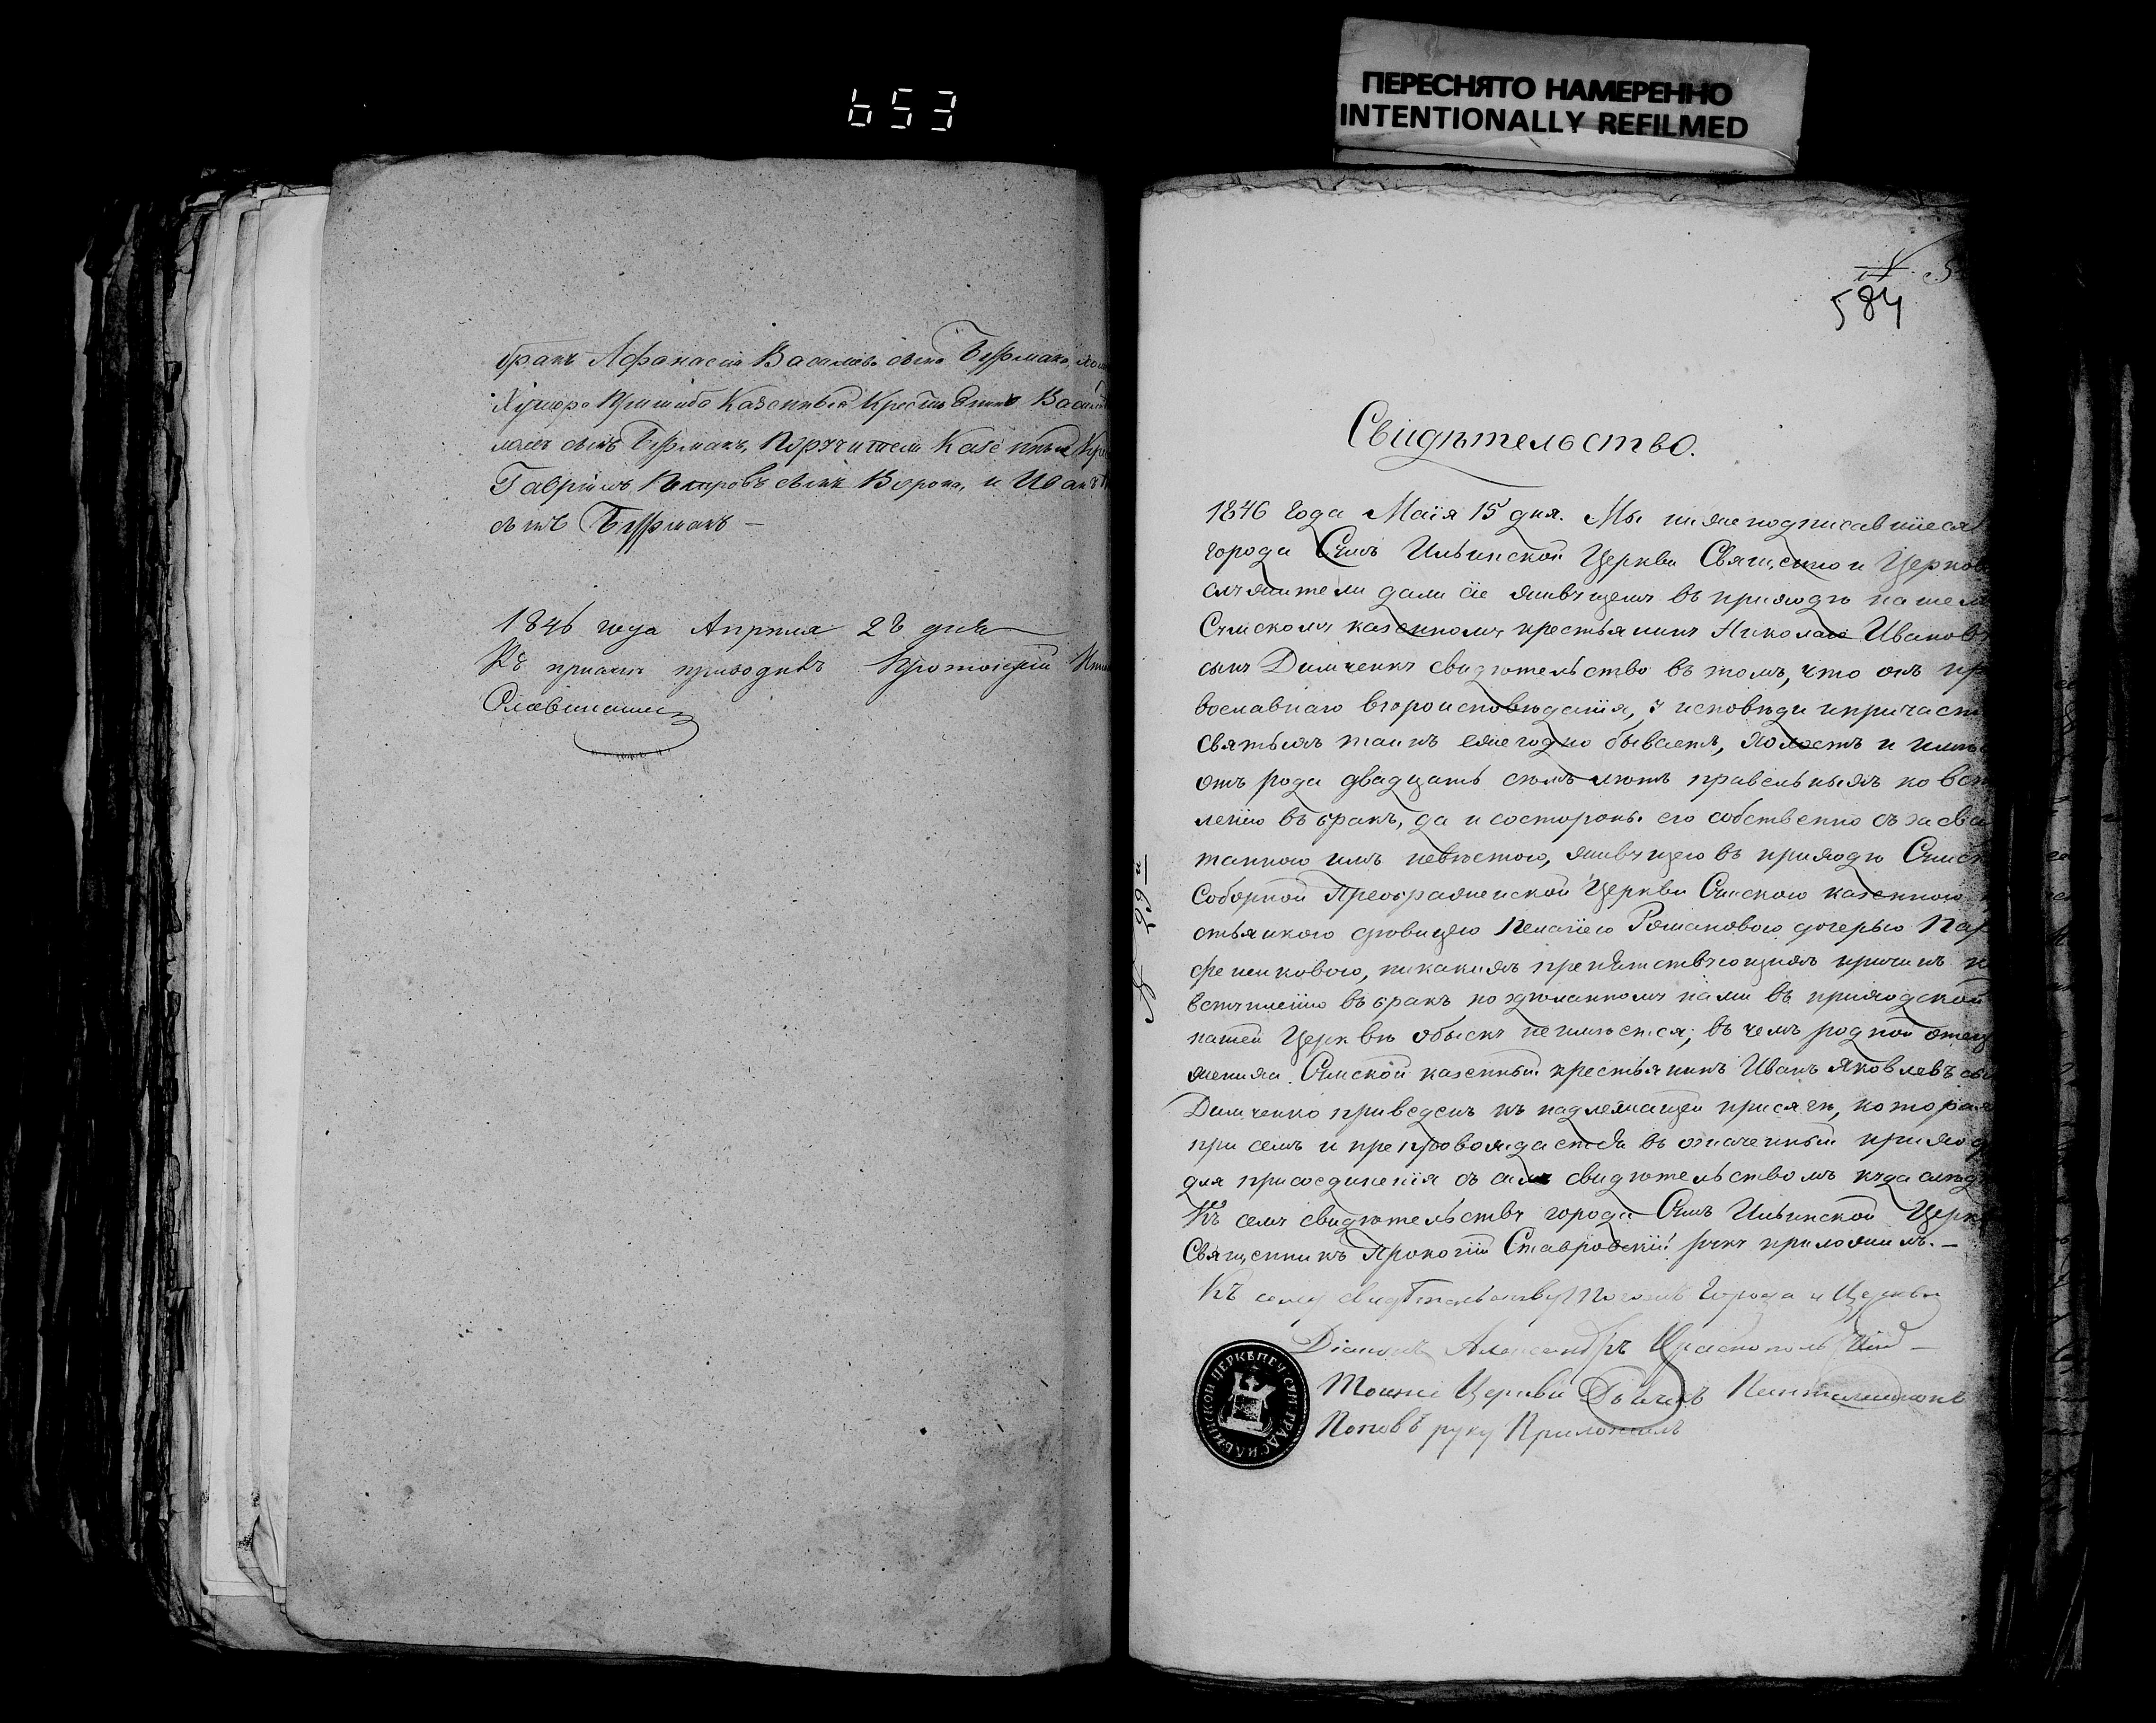 653
ПЕРЕСНЯТО НАМЕРЕННО
INTENTIONALLY REFILMED
бракъ Афанасія Васильева сына Бурмака,
Хутора Казенный Крестьянинъ
сынъ Бурмакъ, Поручители Казенные
Гавріилъ Петровъ сынъ Ворона, и Иванъ
сынъ Бурмакъ —
1846 года Апреля 28 дня
Къ присяги приводилъ Протоіерей
584
Свидѣтельство.
1846 года Маія 15 дня. Мы нижеподписавшіеся
города Сумъ Ильинской Церкви Священно и Церков
служители дали сіе живущему въ приходѣ нашем
Сумскому казенному крестьянину Николаю Иванов
сыну Димченку свидѣтельство въ томъ, что онъ пр
вославнаго вѣроисповѣданія, у исповѣди и причаст
святыхъ таинъ ежегодно бываетъ, холостъ и имѣе
отъ рода двадцать семъ лѣтъ правельныхъ ко вст
ленію въ бракъ, да и состороны его собственно съ засва
танною имъ невѣстою, живущею въ приходѣ Сумск
Соборной Преображенской Церкви Сумскою казенною
стьянкою дѣвицею Пелагіею Романовою дочерью Пар
фенковою, никакихъ препятствующихъ причинъ к
вступленію въ бракъ по здѣланному нами въ приходской
нашей Церквѣ обыску неимѣется; въ чемъ родной отец
жениха Сумской казенный крестьянинъ Иванъ Яковлевъ сы
Димченко приведенъ къ надлежащей присягѣ, котора
при семъ и препровождается въ означенный приход
для присоединенія съ симъ свидѣтельствомъ куда слѣд
Къ сему свидѣтельству города Сумъ Ильинской Церк
Священникъ Прокопій Ставровскій руку приложилъ. —
Къ сему свидѣтельству Города и Церкви
Діаконъ Александръ
Тоижъ Церкви Дьячекъ
Поповъ руку Приложилъ
№ 99й